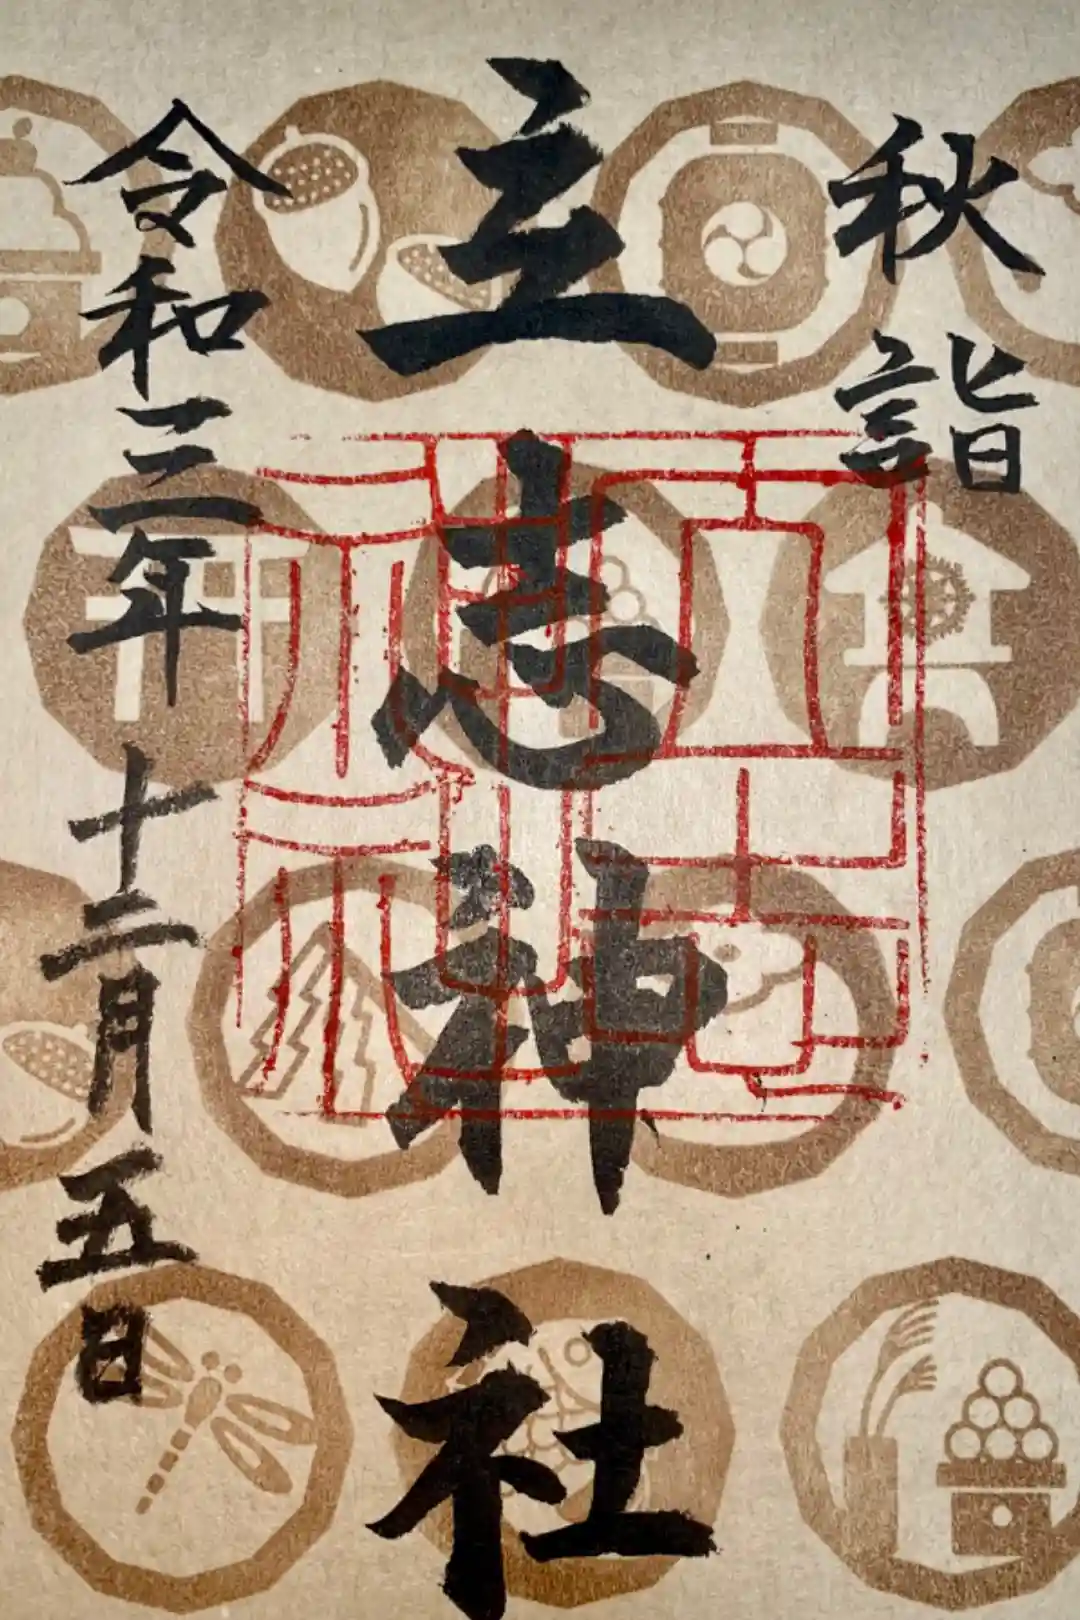 秋詣
立志神社
令和三年十二月五日
立志神社